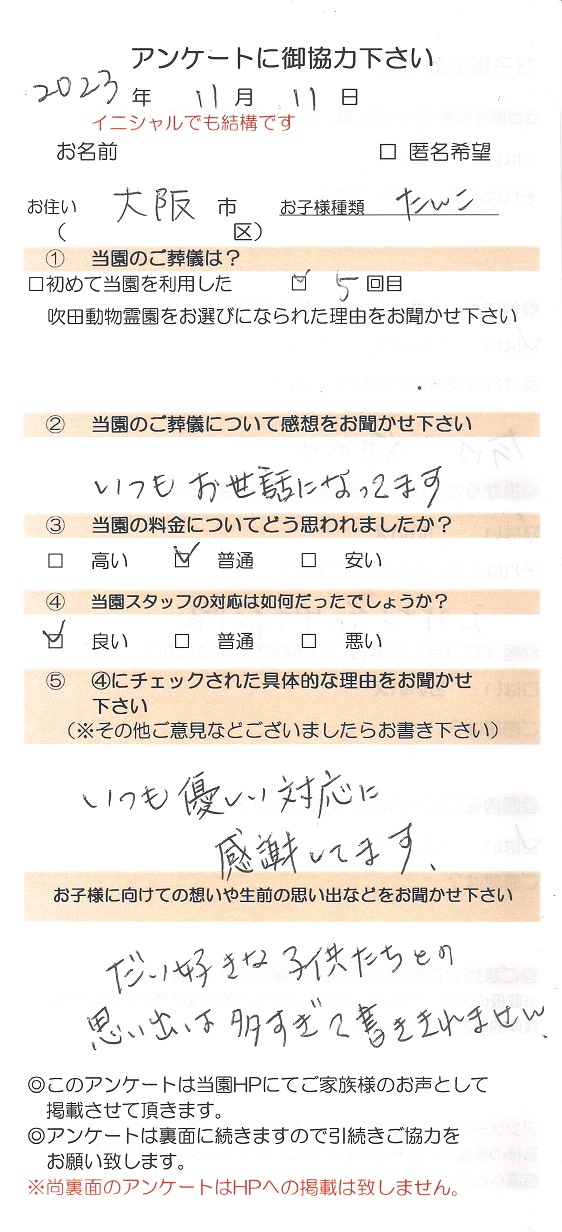 アンケートに御協力下さい
2023年 11月 11日
イニシャルでも結構です
お名前 □ 匿名希望
お住い 大阪 市 お子様種類 たんこ
( 区)
① 当園のご葬儀は？
□初めて当園を利用した ☑ 5回目
吹田動物霊園をお選びになられた理由をお聞かせ下さい
② 当園のご葬儀について感想をお聞かせ下さい
いつもお世話になってます
③ 当園の料金についてどう思われましたか？
□ 高い ☑ 普通 □ 安い
④ 当園スタッフの対応は如何だったでしょうか？
☑ 良い □ 普通 □ 悪い
⑤ ④にチェックされた具体的な理由をお聞かせ
下さい
（※その他ご意見などございましたらお書き下さい）
いつも優しい対応に
感謝してます、
お子様に向けての想いや生前の思い出などをお聞かせ下さい
だい好きな子供たちとの
思い出は多すぎて書ききれません、
◎このアンケートは当園HPにてご家族様のお声として
掲載させて頂きます。
◎アンケートは裏面に続きますので引続きご協力を
お願い致します。
※尚裏面のアンケートはHPへの掲載は致しません。